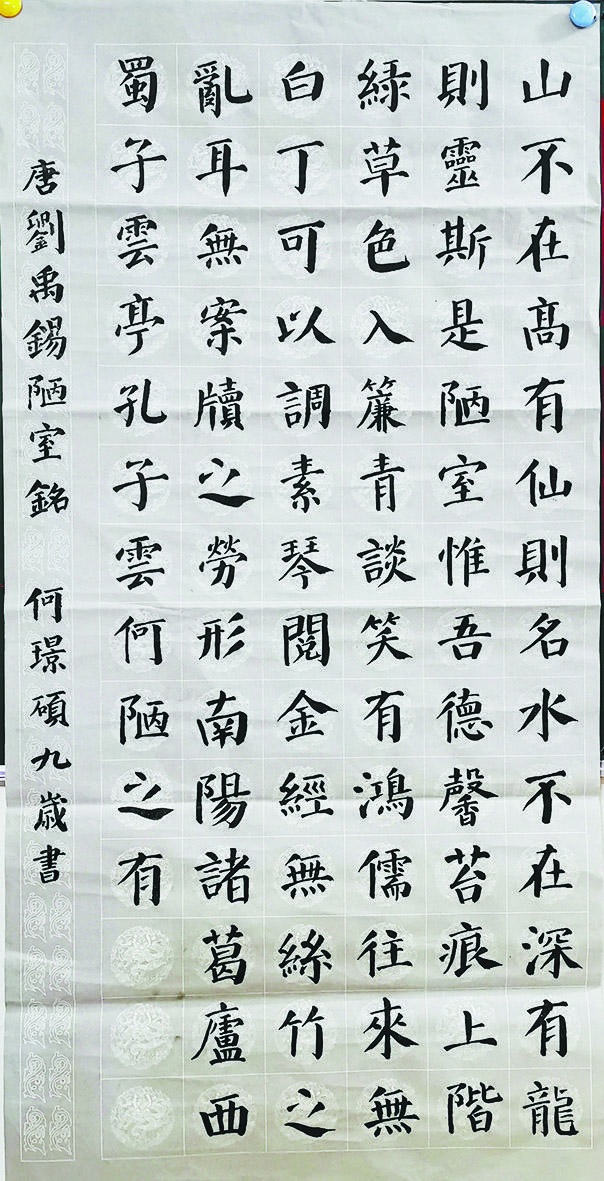 山不在高有仙則名水不在深有龍
則靈斯是陋室惟吾德馨苔痕上階
綠草色入簾青談笑有鴻儒往來無
白丁可以調素琴閱金經無絲竹之
亂耳無案牘之勞形南陽諸葛廬西
蜀子雲亭孔子雲何陋之有
唐劉禹錫陋室銘 何璟碩九歲書